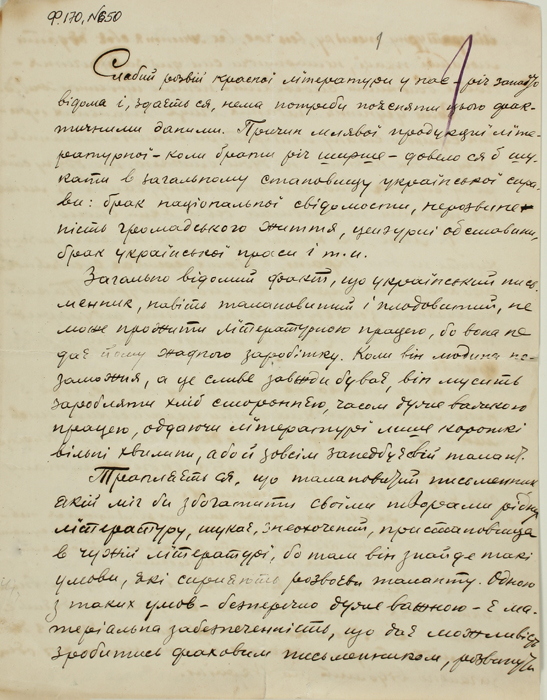 Ф. 170, № 650
1
Слабий розвій красної літератури у нас – річ загально
відома і, здаєть ся, нема потреби пояснати цього фак-
тичними даними. Причин млявої продукциї літе-
ратурної – коли брати річ ширше – довело ся б шу-
кати в загальному становищу української спра-
ви: брак національної свідомости, нерозвине-
ність громадського життя, цензурні обставини,
брак української праси і т. и.
Загально відомий факт, що український пись-
менник, навіть талановитий і плодовитий, не
може прожити літературною працею, бо вона не
дає йому жадного заробітку. Коли він людина не-
заможня, а це сливе завжди буває, він мусить
заробляти хліб сторонньою, часом дуже великою
працею, оддаючи літературі лише короткі
вільні хвилини, або й зовсім занедбуючи талант.
Трапляєть ся, що талановитий письменник
який міг би збогатити своїми творами рідну
літературу, шукає, знеохочений, пристановища
в чужій літературі, бо там він знайде такі
умови, які сприяють розвоєви таланту. Одною
з таких умов – безперечно дуже важною – є ма-
теріальна забезпеченність, що дає можливість
зробитись фаховим письменником, розвинути